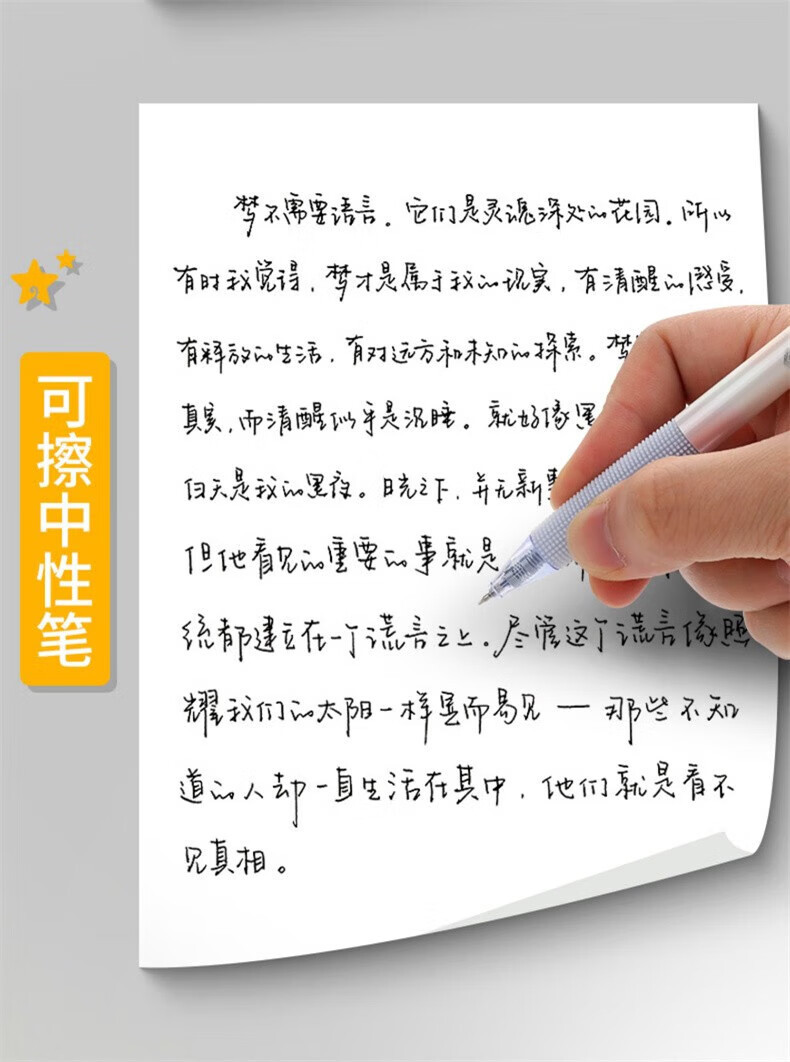 可擦中性笔
梦不需要语言。它们是灵魂深处的花园。所以
有时我觉得，梦才是属于我的现实，有清醒的感受，
有释放的生活，有对远方和未知的探索。梦
真实，而清醒似乎是沉睡。就好像黑
白天是我的黑夜。日光之下，并无新事
但他看见的重要的事就是
统都建立在一个谎言之上。尽管这个谎言像照
耀我们的太阳一样显而易见 — 那些不知
道的人却一直生活在其中，他们就是看不
见真相。